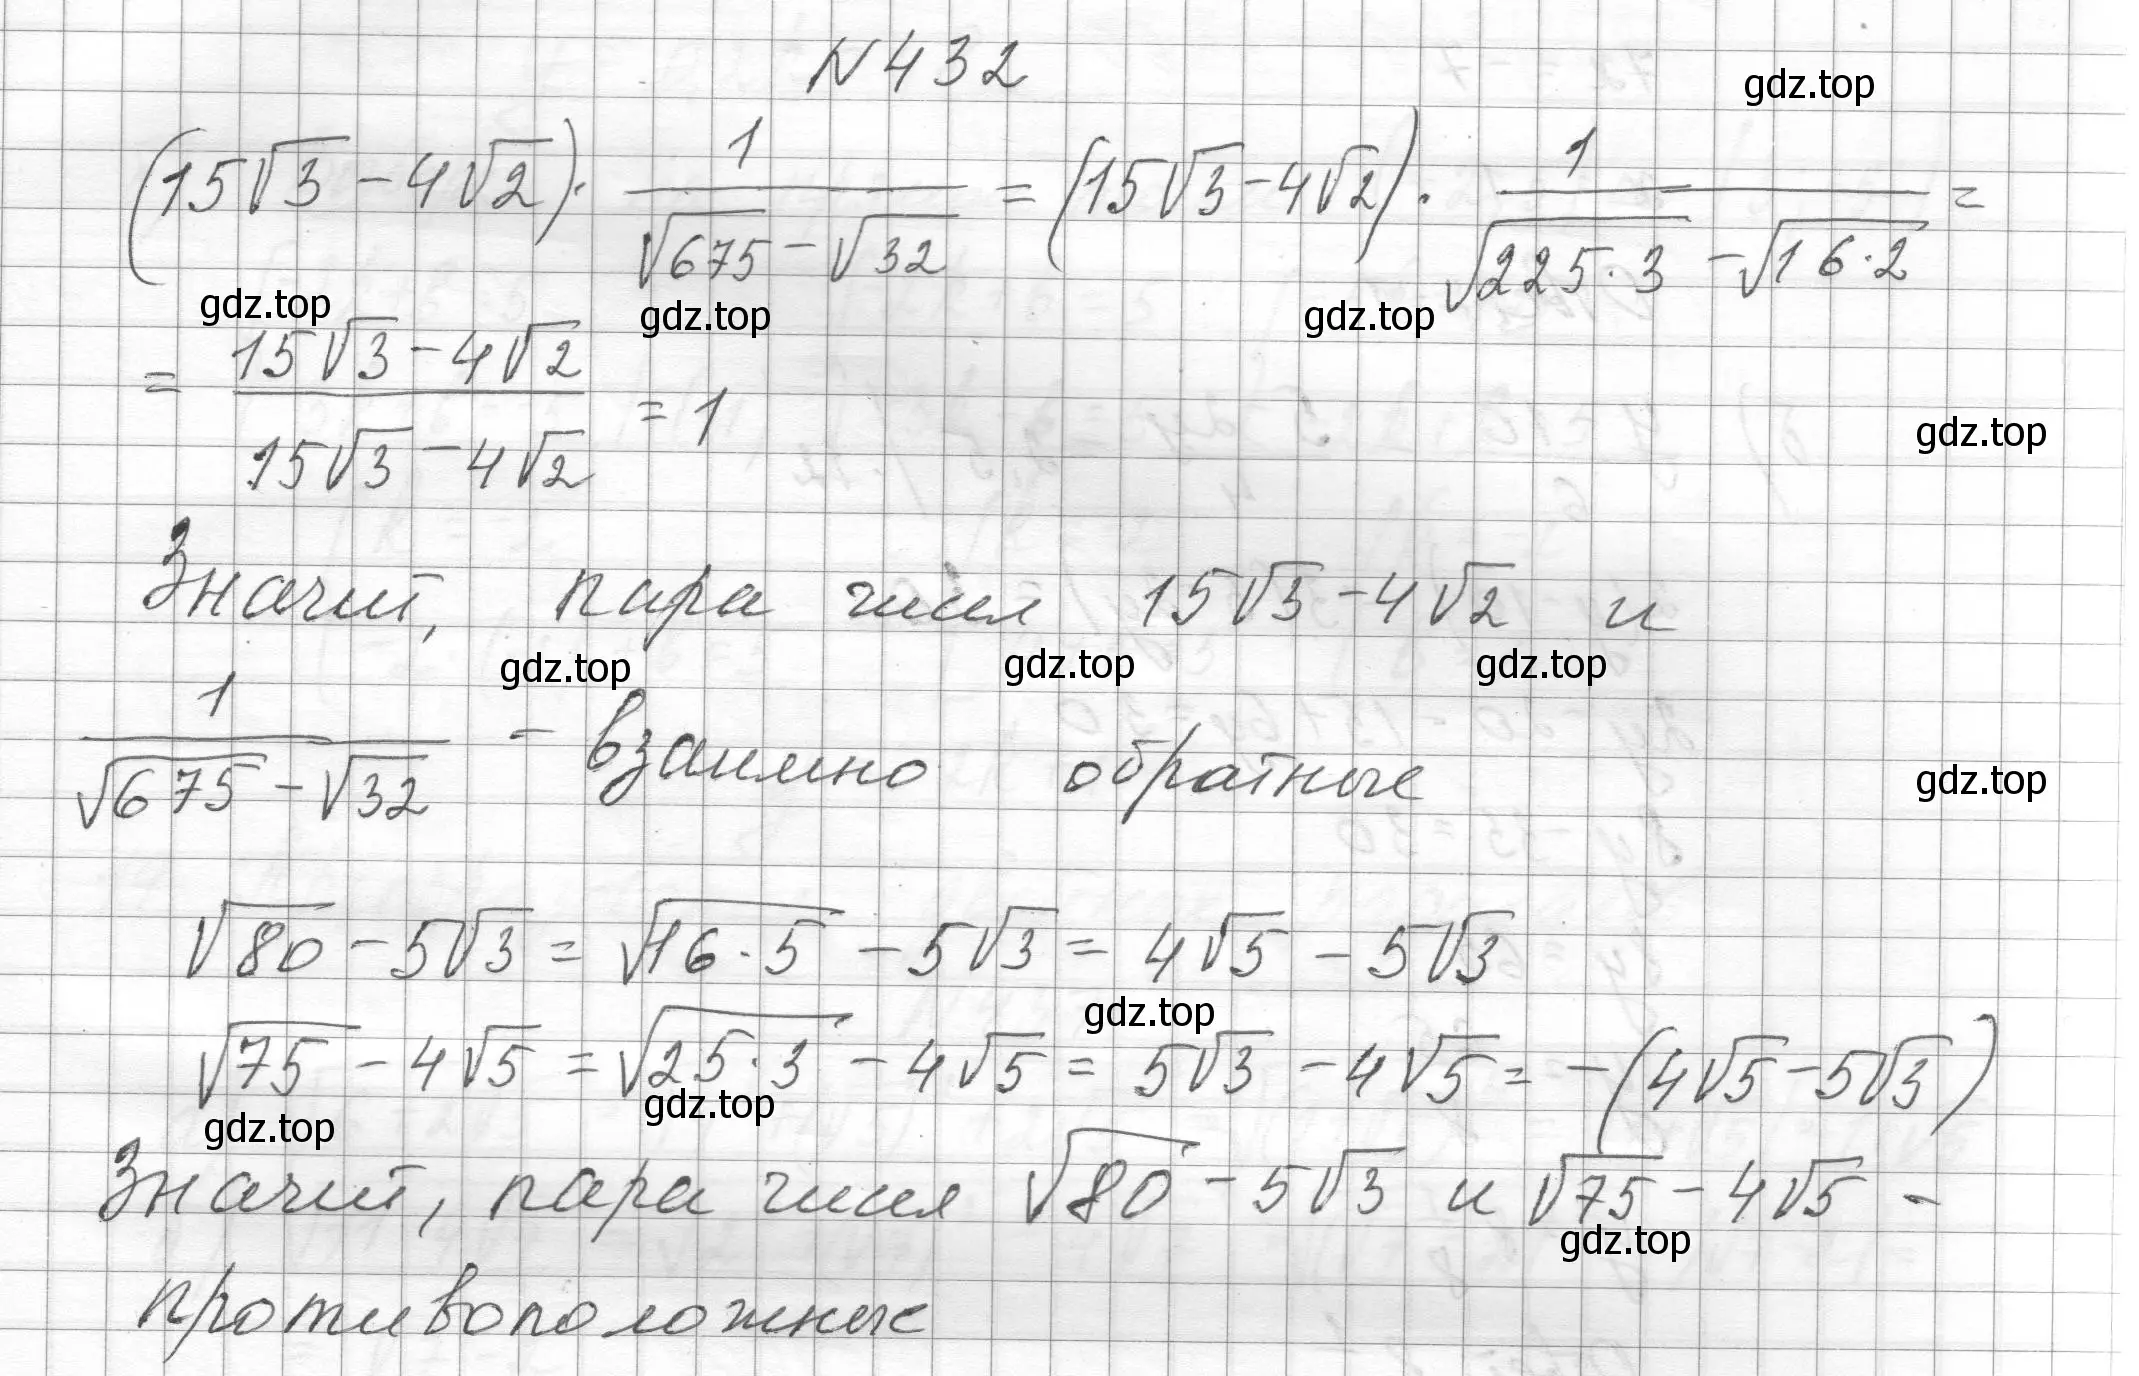 N 432
gdz.top
(15√3 − 4√2) · 1/(√675 − √32) = (15√3 − 4√2) · 1/(√(225·3) − √(16·2)) =
gdz.top gdz.top gdz.top
= (15√3 − 4√2)/(15√3 − 4√2) = 1
gdz.top
Значит, пара чисел 15√3 − 4√2 и
gdz.top gdz.top gdz.top
1/(√675 − √32) − взаимно обратные
gdz.top
√80 − 5√3 = √(16·5) − 5√3 = 4√5 − 5√3
gdz.top
√75 − 4√5 = √(25·3) − 4√5 = 5√3 − 4√5 = −(4√5 − 5√3)
gdz.top gdz.top
Значит, пара чисел √80 − 5√3 и √75 − 4√5 −
gdz.top
противоположные